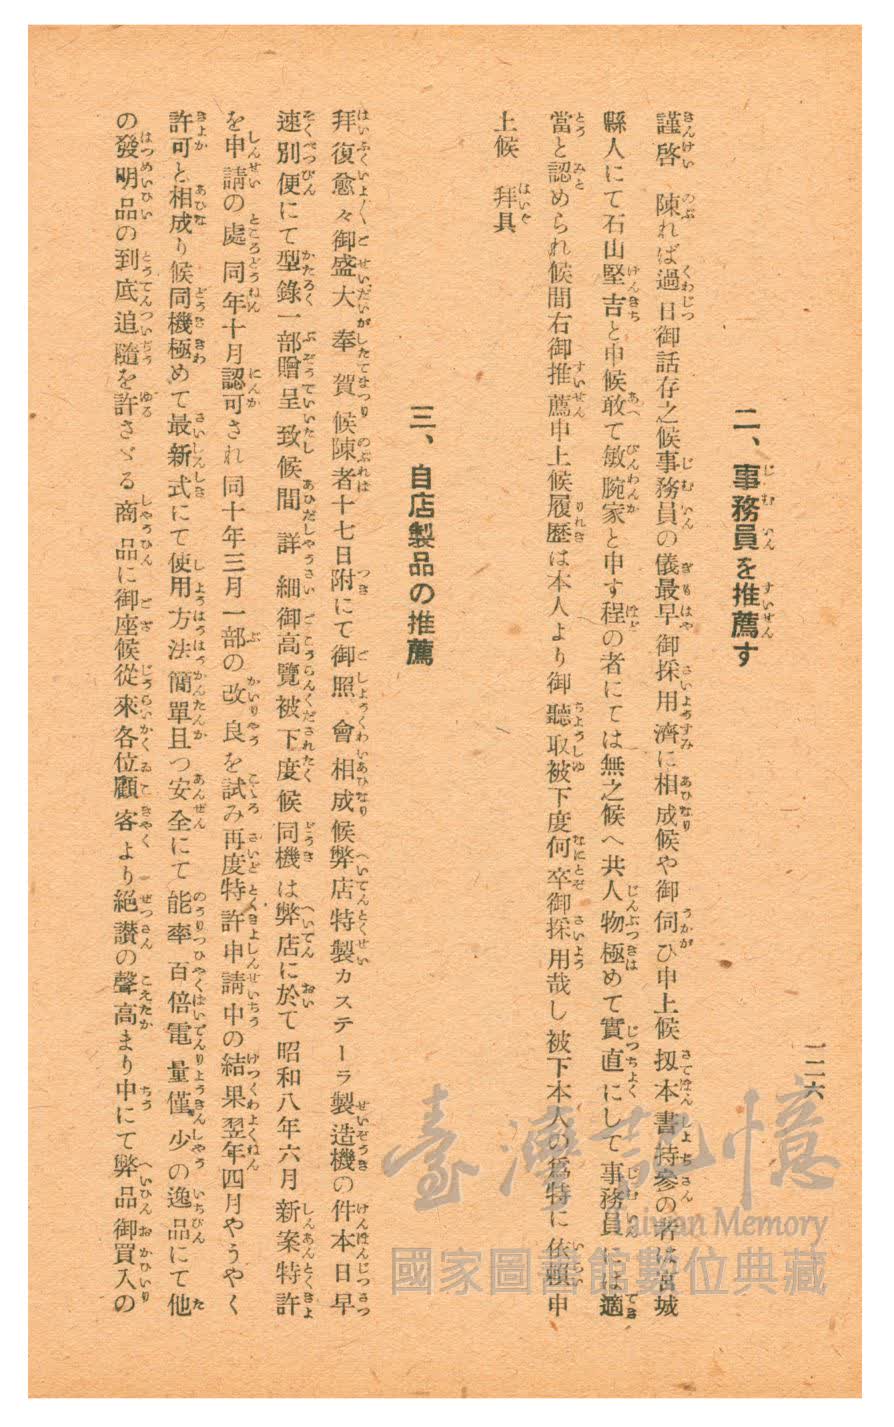 一二六
二、事務員を推薦す
謹啓　陳れば過日御話存之候事務員の儀最早御採用濟に相成候や御伺ひ申上候扨本書持參の者は宮城
縣人にて石山堅吉と申候敢て敏腕家と申す程の者にては無之候へ共人物極めて實直にして事務員には適
當と認められ候間右御推薦申上候履歷は本人より御聽取被下度何卒御採用哉し被下本人の爲特に依賴申
上候　拜具
三、自店製品の推薦
拜復愈々御盛大奉賀候陳者十七日附にて御照會相成候弊店特製カステーラ製造機の件本日早
速別便にて型錄一部贈呈致候間詳細御高覽被下度候同機は弊店に於て昭和八年六月新案特許
を申請の處同年十月認可され同十年三月一部の改良を試み再度特許申請中の結果翌年四月やうやく
許可と相成り候同機極めて最新式にて使用方法簡單且つ安全にて能率百倍電量僅少の逸品にて他
の發明品の到底追隨を許さゞる商品に御座候從來各位顧客より絕讃の聲高まり中にて弊品御買入の
臺灣記憶
Taiwan Memory
國家圖書館數位典藏